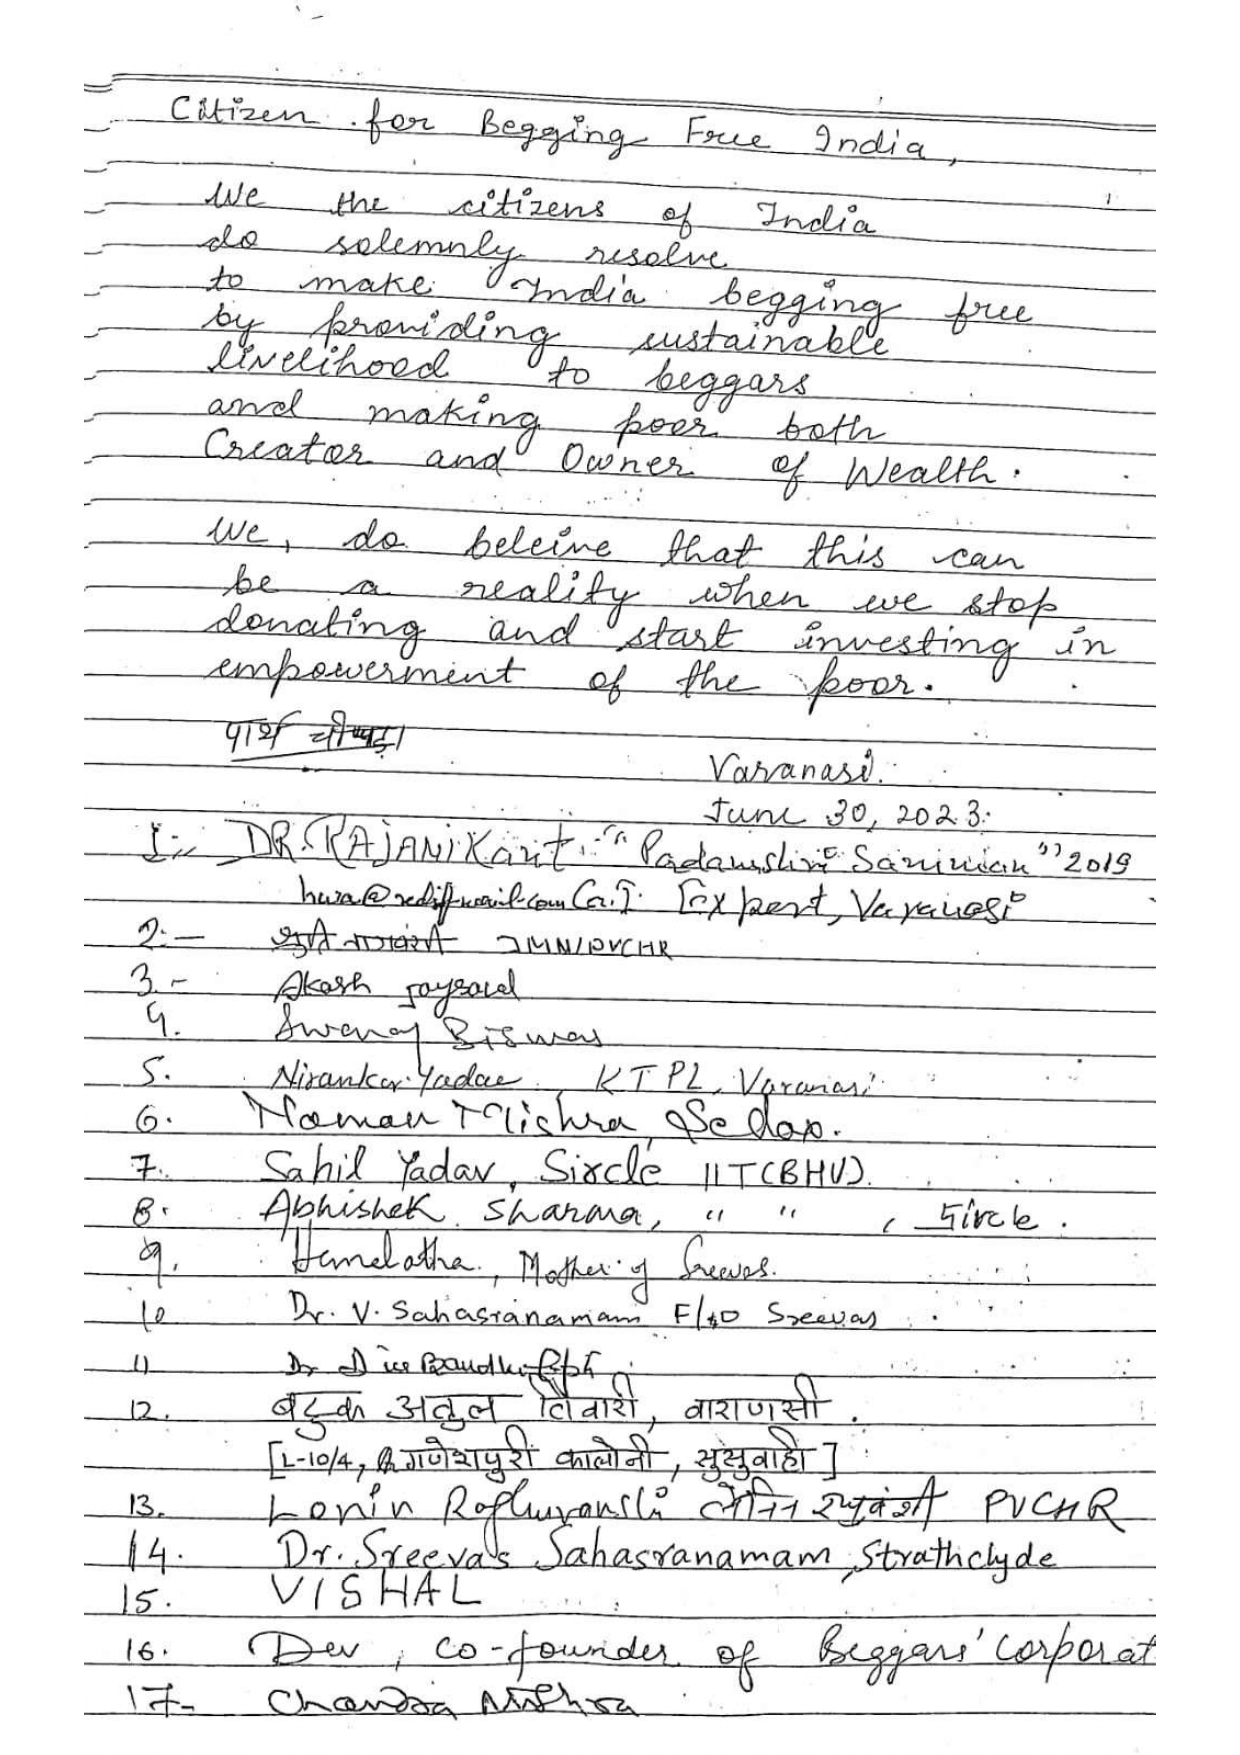 Citizen for Begging Free India,
We the citizens of India
do solemnly resolve
to make India begging free
by providing sustainable
livelihood to beggars
and making poor both
Creator and Owner of Wealth.
We, do beleive that this can
be a reality when we stop
donating and start investing in
empowerment of the poor.
Varanasi.
June 30, 2023.
1:- DR. RAJANIKant - "Padamshri Sammaan" 2019
hwa@rediffmail.com G.I. Expert, Varanasi
2:- JMN/PVCHR
3.- Akash
4. Biswas
5. Nirankar Yadav KTPL, Varanasi
6. Naman Mishra,
7. Sahil Yadav, Sircle IIT(BHU).
8. Abhishek Sharma, " " , Sircle.
9. Hemalatha, Mother of Sreevas.
10 Dr. V. Sahasranamam F/o Sreevas
11 Dr
12. बटुक अतुल तिवारी, वाराणसी.
[L-10/4, गणेशपुरी कालोनी, सुसुवाही]
13. Lenin Raghuvanshi लेनिन रघुवंशी PVCHR
14. Dr. Sreevas Sahasranamam, Strathclyde
15. VISHAL
16. Dev, co-founder of Beggars' Corporat
17- Chandra Mishra